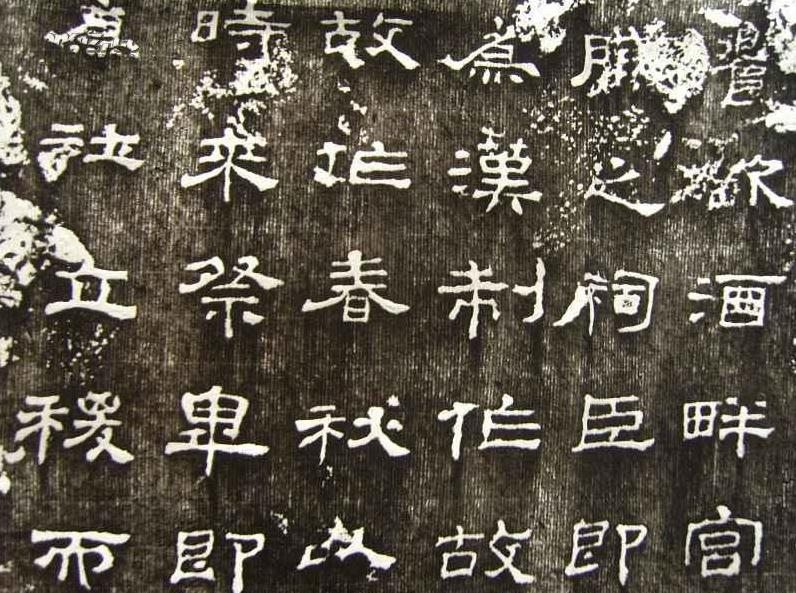 饗飲酒畔宮
脯之祠臣即
為漢制作故
故作春秋以
時來祭畢即
社立稷而